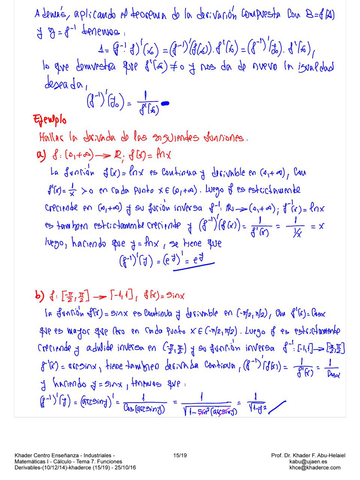 Además, aplicando el teorema de la derivación compuesta con B=f(A)
y g=f⁻¹ tenemos:
1=(f⁻¹∘f)'(x₀)=(f⁻¹)'(f(x₀))·f'(x₀)=(f⁻¹)'(y₀)·f'(x₀),
lo que demuestra que f'(x₀)≠0 y nos da de nuevo la igualdad
deseada,
(f⁻¹)'(y₀) = 1/f'(x₀)
Ejemplo
Hallar la derivada de las siguientes funciones.
a) f: (0,+∞) → R; f(x)=lnx
La función f(x)=lnx es continua y derivable en (0,+∞), con
f'(x)=1/x >0 en cada punto x∈(0,+∞). Luego f es estrictamente
creciente en (0,+∞) y su función inversa f⁻¹: R → (0,+∞); f⁻¹(x)=lnx
es tambien estrictamente creciente y (f⁻¹)'(f(x))= 1/f'(x) = 1/(1/x) = x
luego, haciendo que y=lnx, se tiene que
(f⁻¹)'(y)=(e^y)'=e^y
b) f: [-π/2, π/2] → [-1,1], f(x)=sinx
La función f(x)=sinx es continua y derivable en (-π/2,π/2), con f'(x)=cosx
que es mayor que cero en cada punto x∈(-π/2,π/2). Luego f es estrictamente
creciente y admite inversa en (-π/2, π/2) y su función inversa f⁻¹:[-1,1]→[-π/2, π/2]
f⁻¹(x)= arcsinx, tiene tambien derivada continua, (f⁻¹)'(f(x))= 1/f'(x) = 1/cosx
y haciendo y=sinx, tenemos que:
(f⁻¹)'(y)=(arcsiny)'= 1/cos(arcsiny) = 1/√(1-sin²(arcsiny)) = 1/√(1-y²)
Khader Centro Enseñanza - Industriales -
Matemáticas I - Cálculo - Tema 7: Funciones
Derivables-(10/12/14)-khaderce (15/19) - 25/10/16
15/19
Prof. Dr. Khader F. Abu-Helaiel
kabu@ujaen.es
khce@khaderce.com